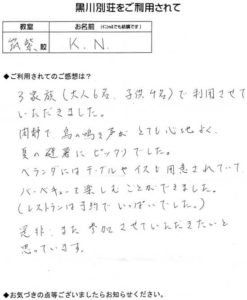 黒川別荘をご利用されて
教室
お名前 (イニシャルでも結構です)
筑紫 校
K. N.
◆ご利用されてのご感想は?
3家族(大人6名、子供9名)で利用させて
いただきました。
閑静で、鳥の鳴き声がとても心地よく、
夏の避暑にピッタリでした。
ベランダにはテーブルやイスも用意されていて、
バーベキューを楽しむことができました。
(レストランは予約でいっぱいでした。)
是非、また参加させていただきたいと
思っています。
◆お気づきの点等ございましたらお知らせください。